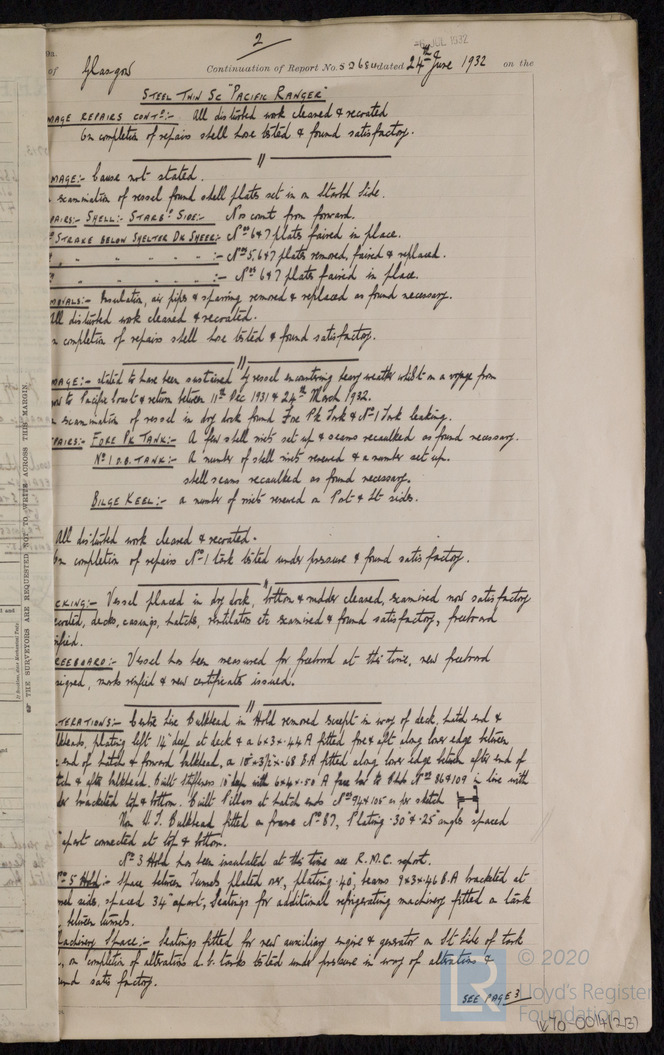 2
-6 JUL 1932
of Glasgow Continuation of Report No. 52684 dated 24th June 1932 on the
STEEL TWIN SC "PACIFIC RANGER"
MAGE REPAIRS CONTD:- All disturbed work cleaned & recoated
On completion of repairs shell hose tested & found satisfactory.
MAGE:- Cause not stated.
examination of vessel found shell plates set in on Starbd Side.
PAIRS:- SHELL:- STARBD SIDE:- Nos count from forward.
STRAKE BELOW SHELTER DK SHEER:- Nos 6 & 7 plates faired in place.
" " " " " :- Nos 5, 6 & 7 plates removed, faired & replaced.
" " " " " :- Nos 6 & 7 plates faired in place.
MOVALS:- Insulation, air pipes & sparring removed & replaced as found necessary.
All disturbed work cleaned & recoated.
On completion of repairs shell hose tested & found satisfactory.
MAGE:- stated to have been sustained by vessel encountering heavy weather whilst on a voyage from
to Pacific Coast & return between 11th Dec 1931 & 24th March 1932.
examination of vessel in dry dock found Fore Pk Tank & No 1 Tank leaking.
PAIRS:- FORE PK TANK:- A few shell rivets set up & seams recaulked as found necessary.
No 1 D.B. TANK:- A number of shell rivets renewed & a number set up.
shell seams recaulked as found necessary.
BILGE KEEL:- a number of rivets renewed on Port & St sides.
All disturbed work cleaned & recoated.
On completion of repairs No 1 tank tested under pressure & found satisfactory.
CKING:- Vessel placed in dry dock, bottom & rudder cleaned, examined now satisfactory
coated, decks, casings, hatches, ventilators etc examined & found satisfactory, freeboard
rified.
REEBOARD:- Vessel has been measured for freeboard at this time, new freeboard
signed, marks verified & new certificate issued.
TERATIONS:- Centre Line Bulkhead in Hold removed except in way of deck, hatch end &
lkheads, plating left 14" deep at deck & a 6×3×.44 A fitted fore & aft along lower edge between
end of hatch & forward bulkhead, a 10"×3½"×.68 B.A fitted along lower edge between after end of
tch & after bulkhead. Built stiffeners 18" deep with 6×4×.50 A face bar to Bhds Nos 86 & 109 in line with
bracketed top & bottom. Built Pillars at hatch ends Nos 94 & 105 as per sketch
New W.T. Bulkhead fitted on frame No 87, Plating .30" & .25" angles spaced
apart connected at top & bottom.
No 3 Hold has been insulated at this time see R.M.C. report.
No 5 Hold:- Space between Tunnels plated over, plating .40", beams 9×3×.46 B.A bracketed at
nel sides, spaced 34" apart, Seatings for additional refrigerating machinery fitted on tank
between tunnels.
Machinery Space:- Seatings fitted for new auxiliary engine & generator on St side of tank
, on completion of alterations d.b. tanks tested under pressure in way of alterations &
und satisfactory.
SEE PAGE 3
THE SURVEYORS ARE REQUESTED NOT TO WRITE ACROSS THIS MARGIN.
LR
© 2020
Lloyd's Register
Foundation
W70-0014(2B)